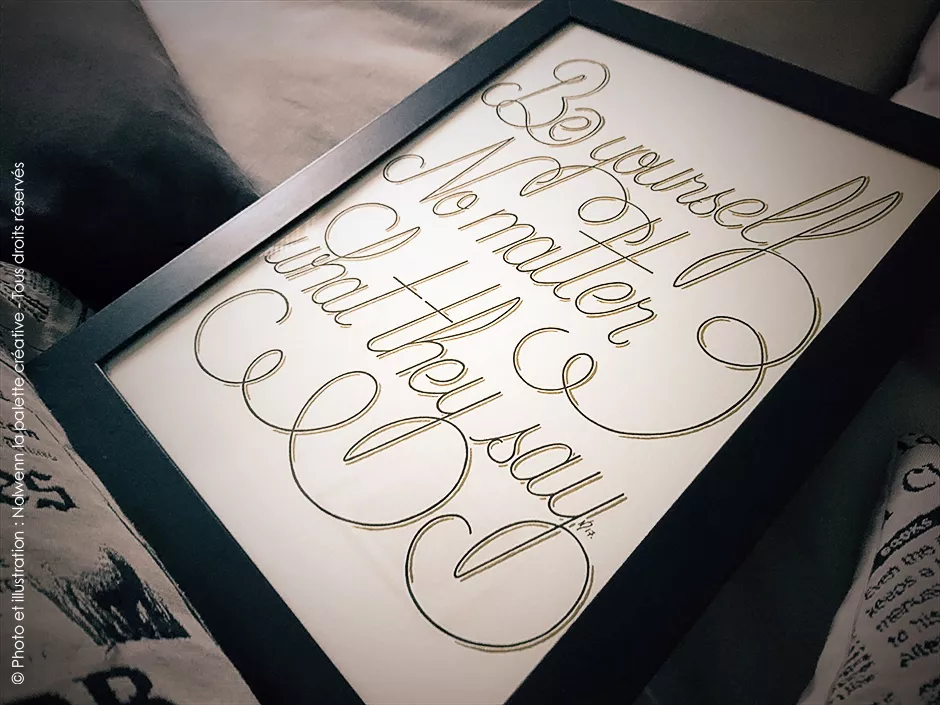 Be yourself
No matter
what they say
© Photo et illustration : Nolwenn la palette créative - Tous droits réservés
books
Even the
keeps a